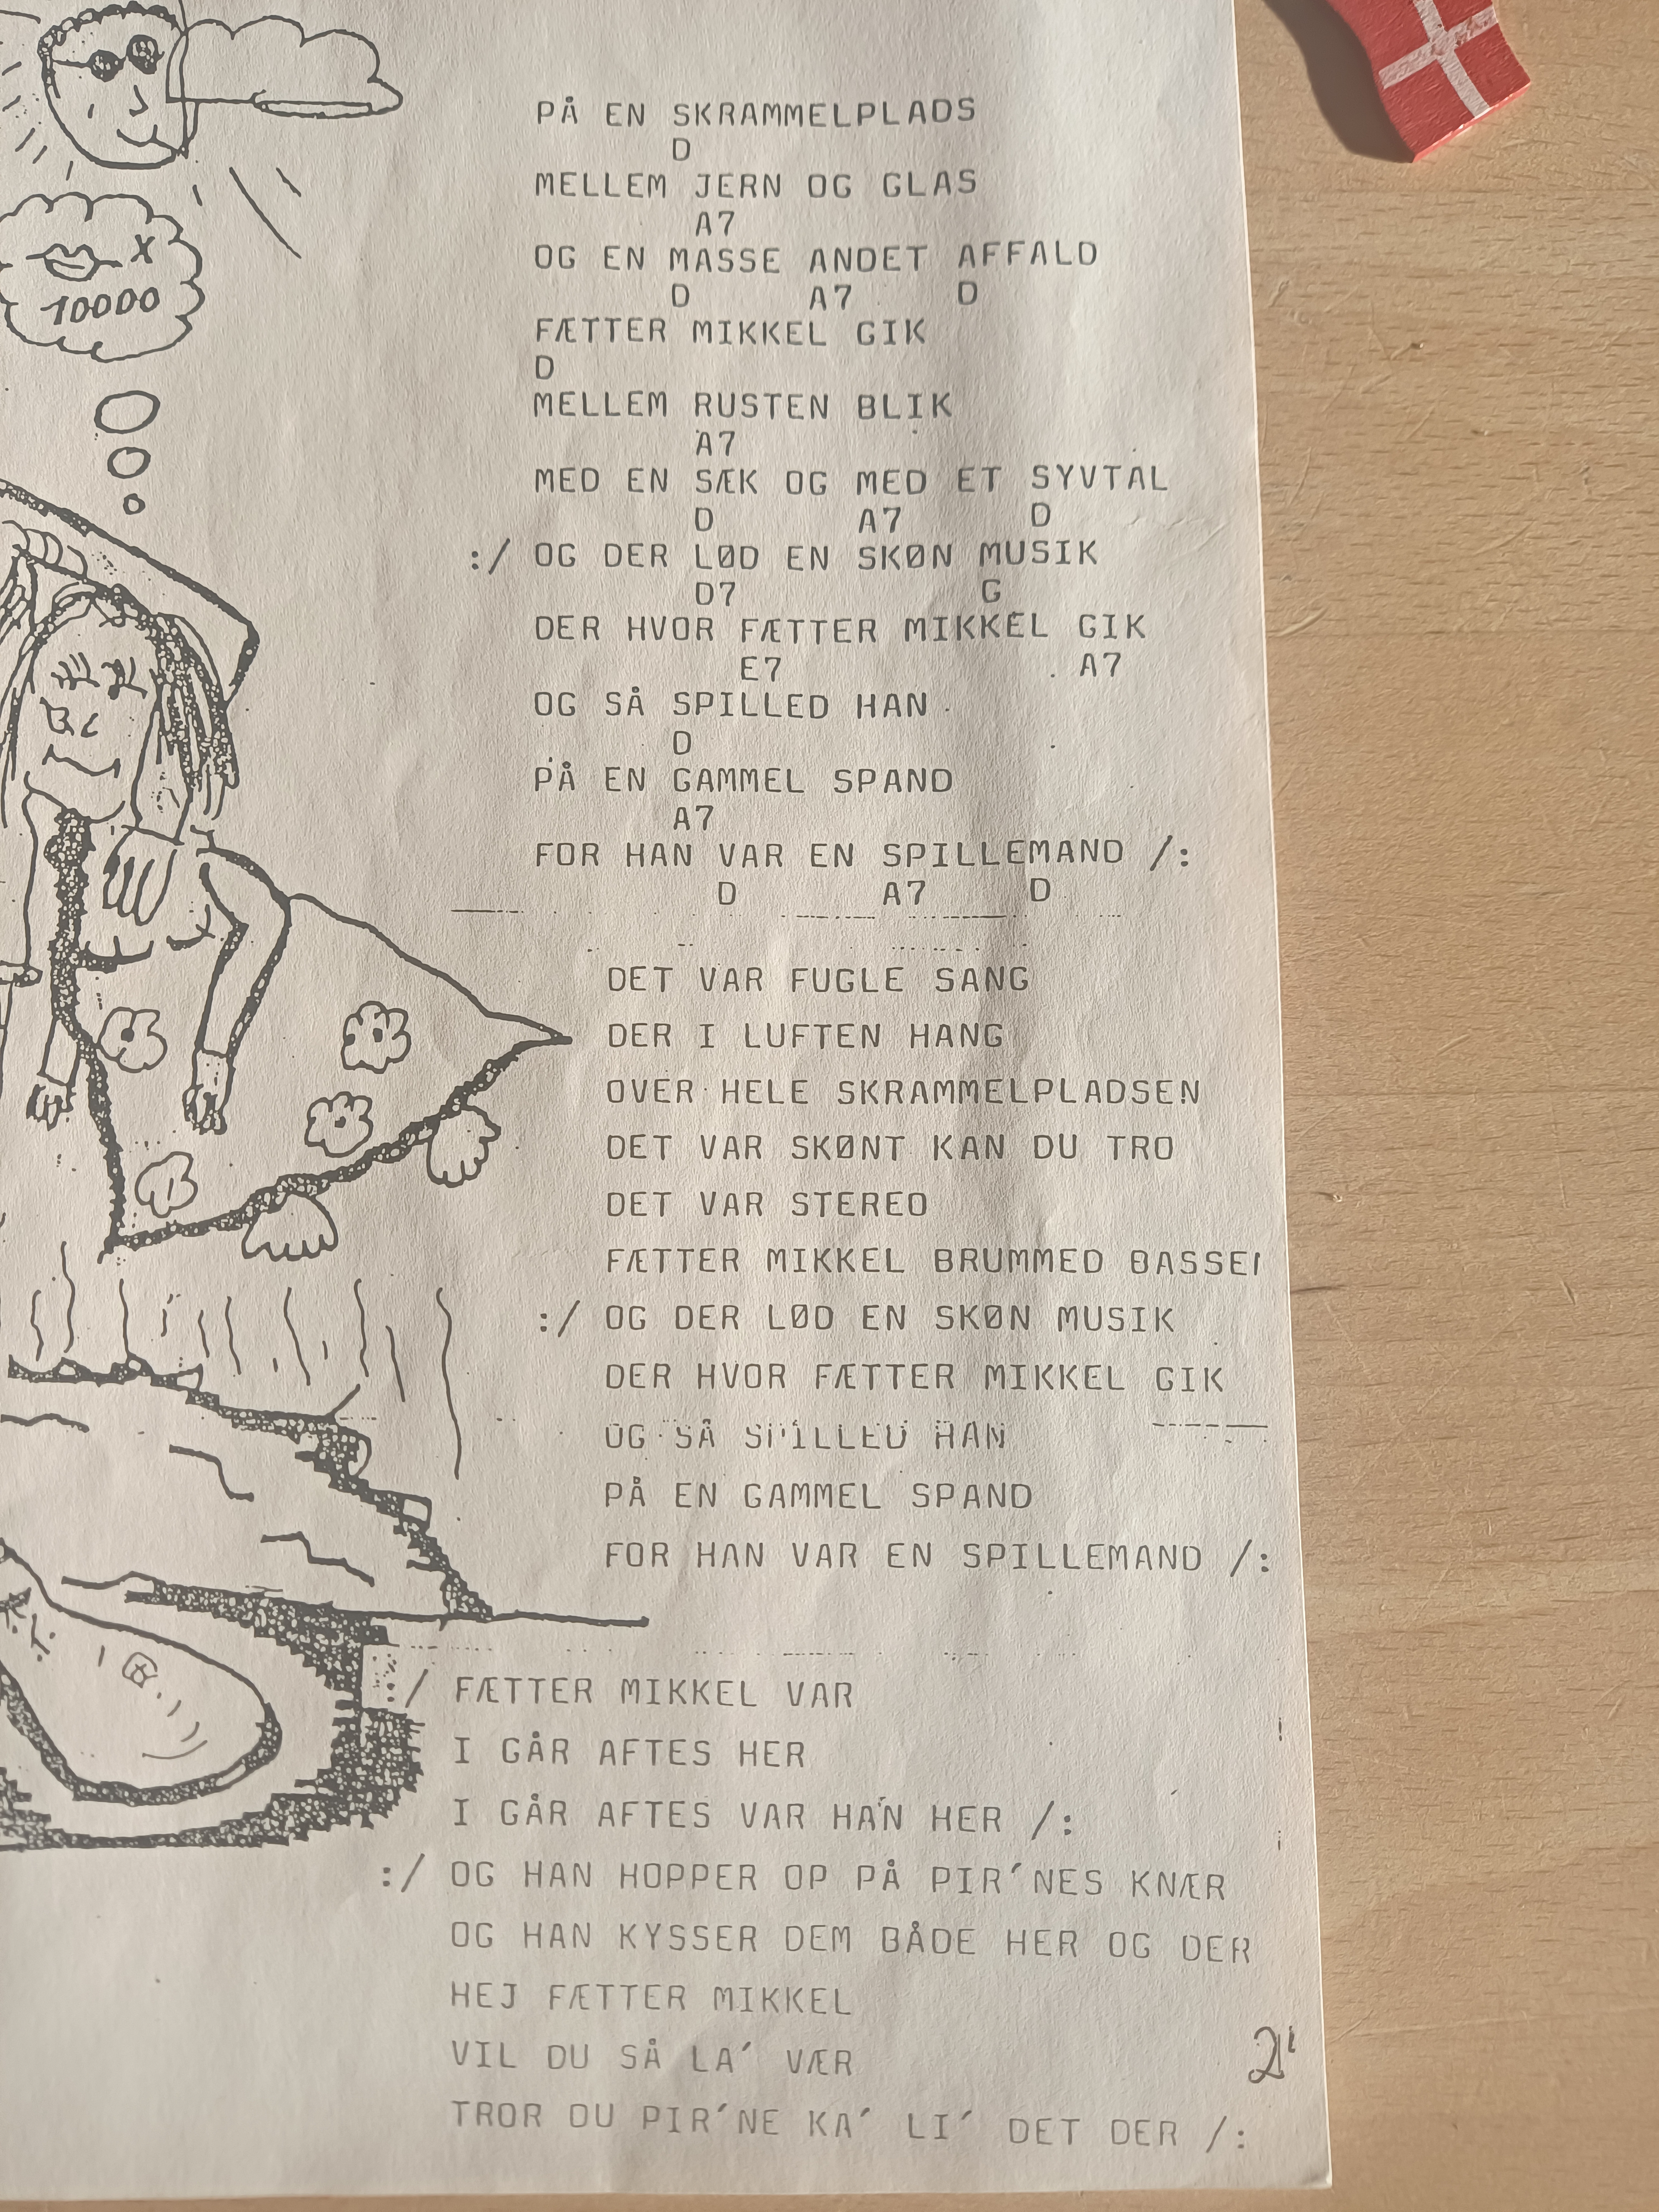 X
10000
PÅ EN SKRAMMELPLADS
D
MELLEM JERN OG GLAS
A7
OG EN MASSE ANDET AFFALD
D A7 D
FÆTTER MIKKEL GIK
D
MELLEM RUSTEN BLIK
A7
MED EN SÆK OG MED ET SYVTAL
D A7 D
:/ OG DER LØD EN SKØN MUSIK
D7 G
DER HVOR FÆTTER MIKKEL GIK
E7 A7
OG SÅ SPILLED HAN
D
PÅ EN GAMMEL SPAND
A7
FOR HAN VAR EN SPILLEMAND /:
D A7 D
DET VAR FUGLE SANG
DER I LUFTEN HANG
OVER HELE SKRAMMELPLADSEN
DET VAR SKØNT KAN DU TRO
DET VAR STEREO
FÆTTER MIKKEL BRUMMED
:/ OG DER LØD EN SKØN MUSIK
DER HVOR FÆTTER MIKKEL GIK
OG SÅ SPILLED HAN
PÅ EN GAMMEL SPAND
FOR HAN VAR EN SPILLEMAND /:
:/ FÆTTER MIKKEL VAR
I GÅR AFTES HER
I GÅR AFTES VAR HAN HER /:
:/ OG HAN HOPPER OP PÅ PIR´NES KNÆR
OG HAN KYSSER DEM BÅDE HER OG DER
HEJ FÆTTER MIKKEL
VIL DU SÅ LA´ VÆR
TROR DU PIR´NE KA´ LI´ DET DER /: